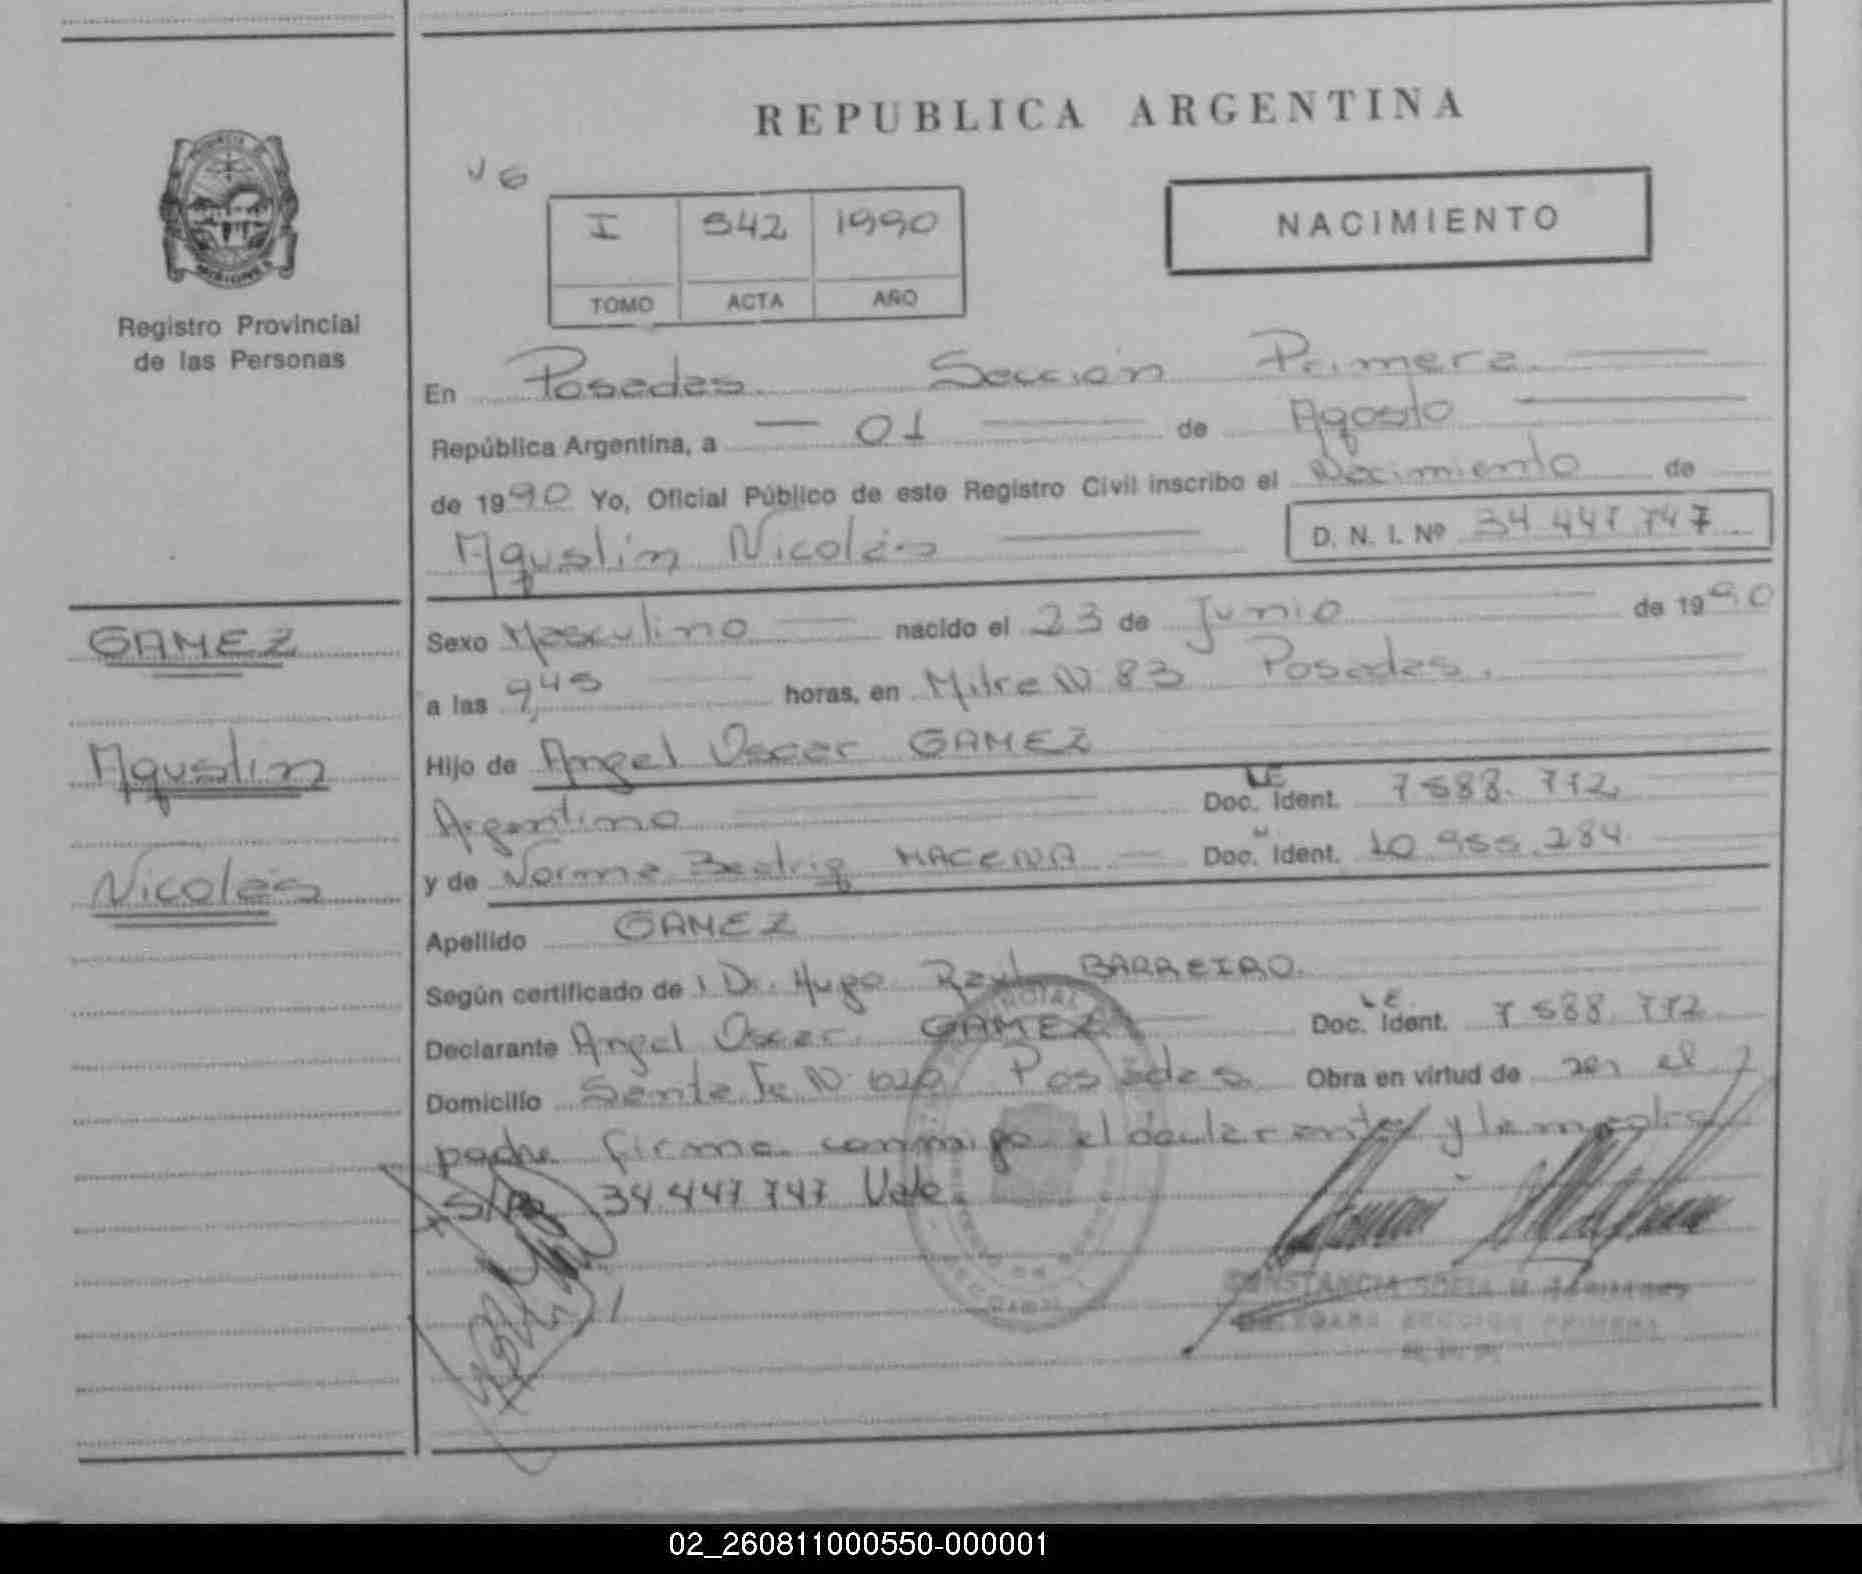 REPUBLICA ARGENTINA
V6
I 542 1990
TOMO ACTA AÑO
NACIMIENTO
PROVINCIA DE MISIONES
Registro Provincial
de las Personas
En Posadas Sección Primera
República Argentina, a — 01 — de Agosto
de 1990 Yo, Oficial Público de este Registro Civil inscribo el Nacimiento de
Agustín Nicolás D. N. I. Nº 34 447 747
GAMEZ
Agustín
Nicolás
Sexo Masculino nacido el 23 de Junio de 1990
a las 9,45 horas, en Mitre N 83 Posadas.
Hijo de Angel Oscar GAMEZ
Argentino Doc. Ident. LE 7588.772
y de Norma Beatriz MACENA — Doc. Ident. " 10 955.284
Apellido GAMEZ
Según certificado de : Dr. Hugo Raul BARREIRO.
Declarante Angel Oscar GAMEZ — Doc. Ident. LE 7588.772
Domicilio Santa Fe N. 620 Posadas Obra en virtud de ser el
padre firma conmigo el declarante y la madre
S/R 34 447 747 Vale.
CONSTANCIA SOFIA M.
DELEGADA SECCION PRIMERA
R.P.P.
02_260811000550-000001